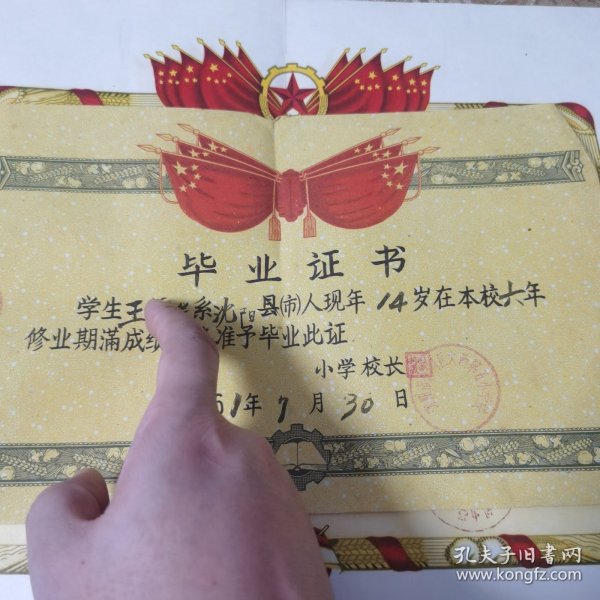 毕业证书
学生王系沈阳县(市)人现年14岁在本校六年
修业期滿成绩准予毕业此证
小学校长
61年7月30日
孔夫子旧书网
www.kongfz.com